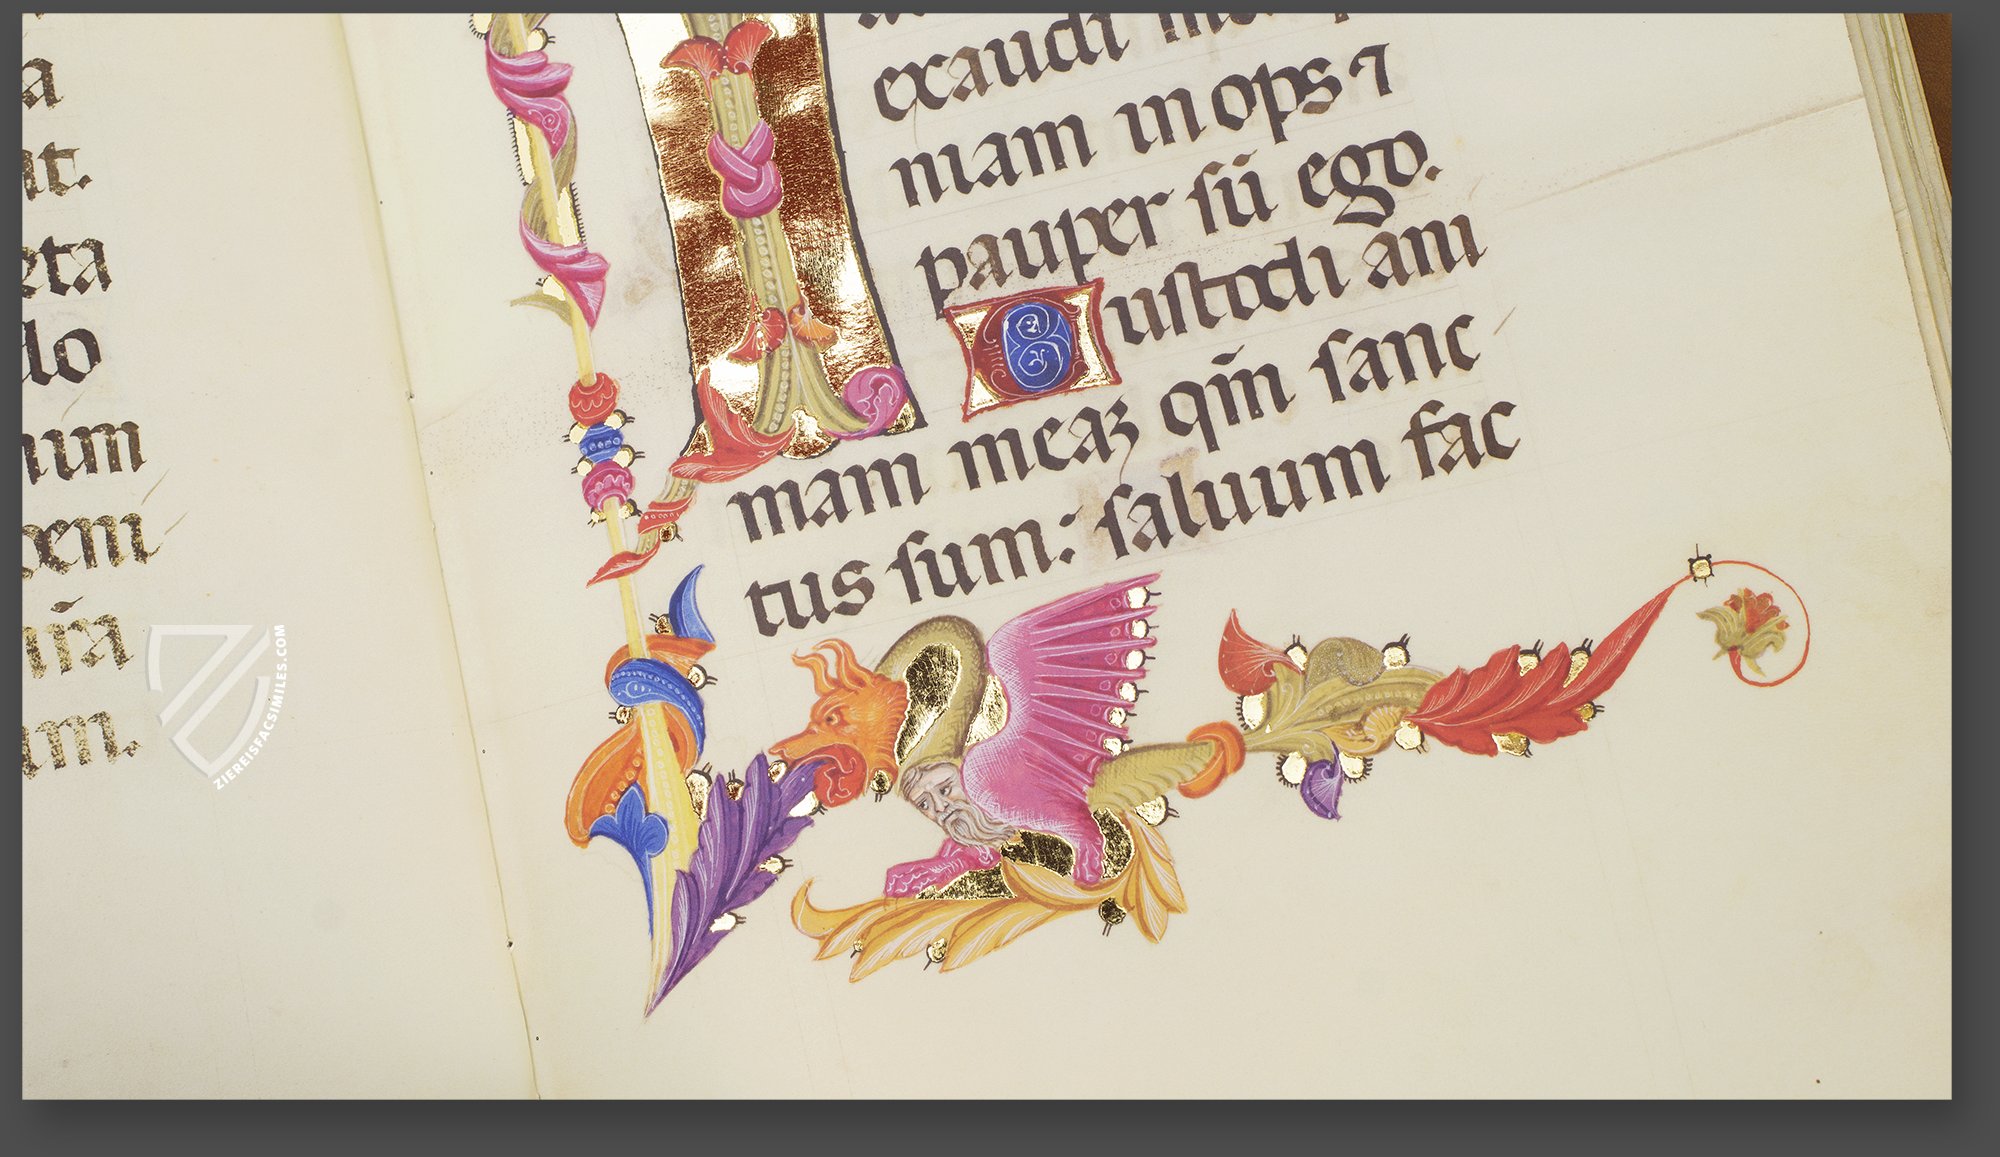 a
at.
eta
lo
num
exem
niā
am.
exaudi
niam inops ⁊
pauper sū ego.
Custodi ani
mam meaꝫ qm̄ sanc
tus sum: saluum fac
ZIEREISFACSIMILES.COM